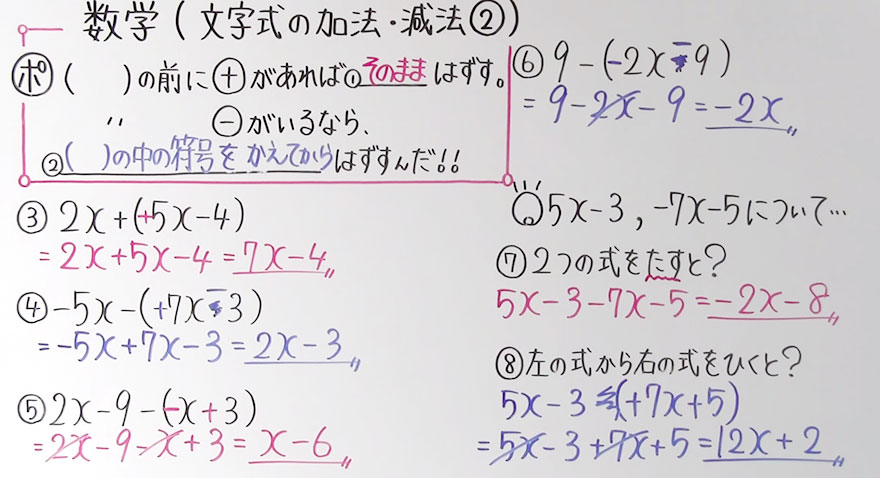 数学(文字式の加法・減法②)
ポ ( )の前に⊕があれば①そのままはずす。
〃 ⊖がいるなら、
②( )の中の符号をかえてからはずすんだ!!
③ 2x+(+5x-4)
=2x+5x-4=7x-4〃
④ -5x-(+7x-3)
=-5x+7x-3=2x-3〃
⑤ 2x-9-(-x+3)
=2x-9-x+3=x-6〃
⑥ 9-(-2x-9)
=9-2x-9=-2x〃
5x-3, -7x-5について…
⑦ 2つの式をたすと?
5x-3-7x-5=-2x-8〃
⑧ 左の式から右の式をひくと?
5x-3(+7x+5)
=5x-3+7x+5=12x+2〃